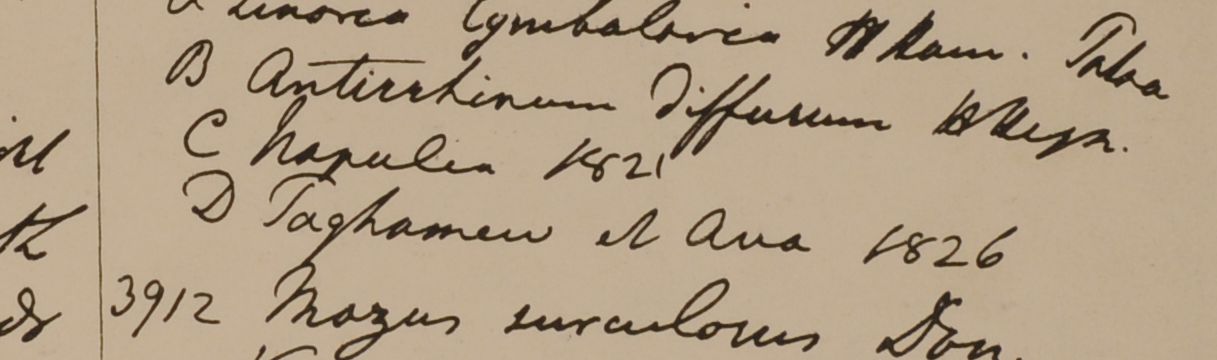 Linaria Cymbalaria H Ham.
B Antirrhinum diffusum H
C Napulia 1821
D Taghamew et Ava 1826
3912 Mazus surculosus Don.
th